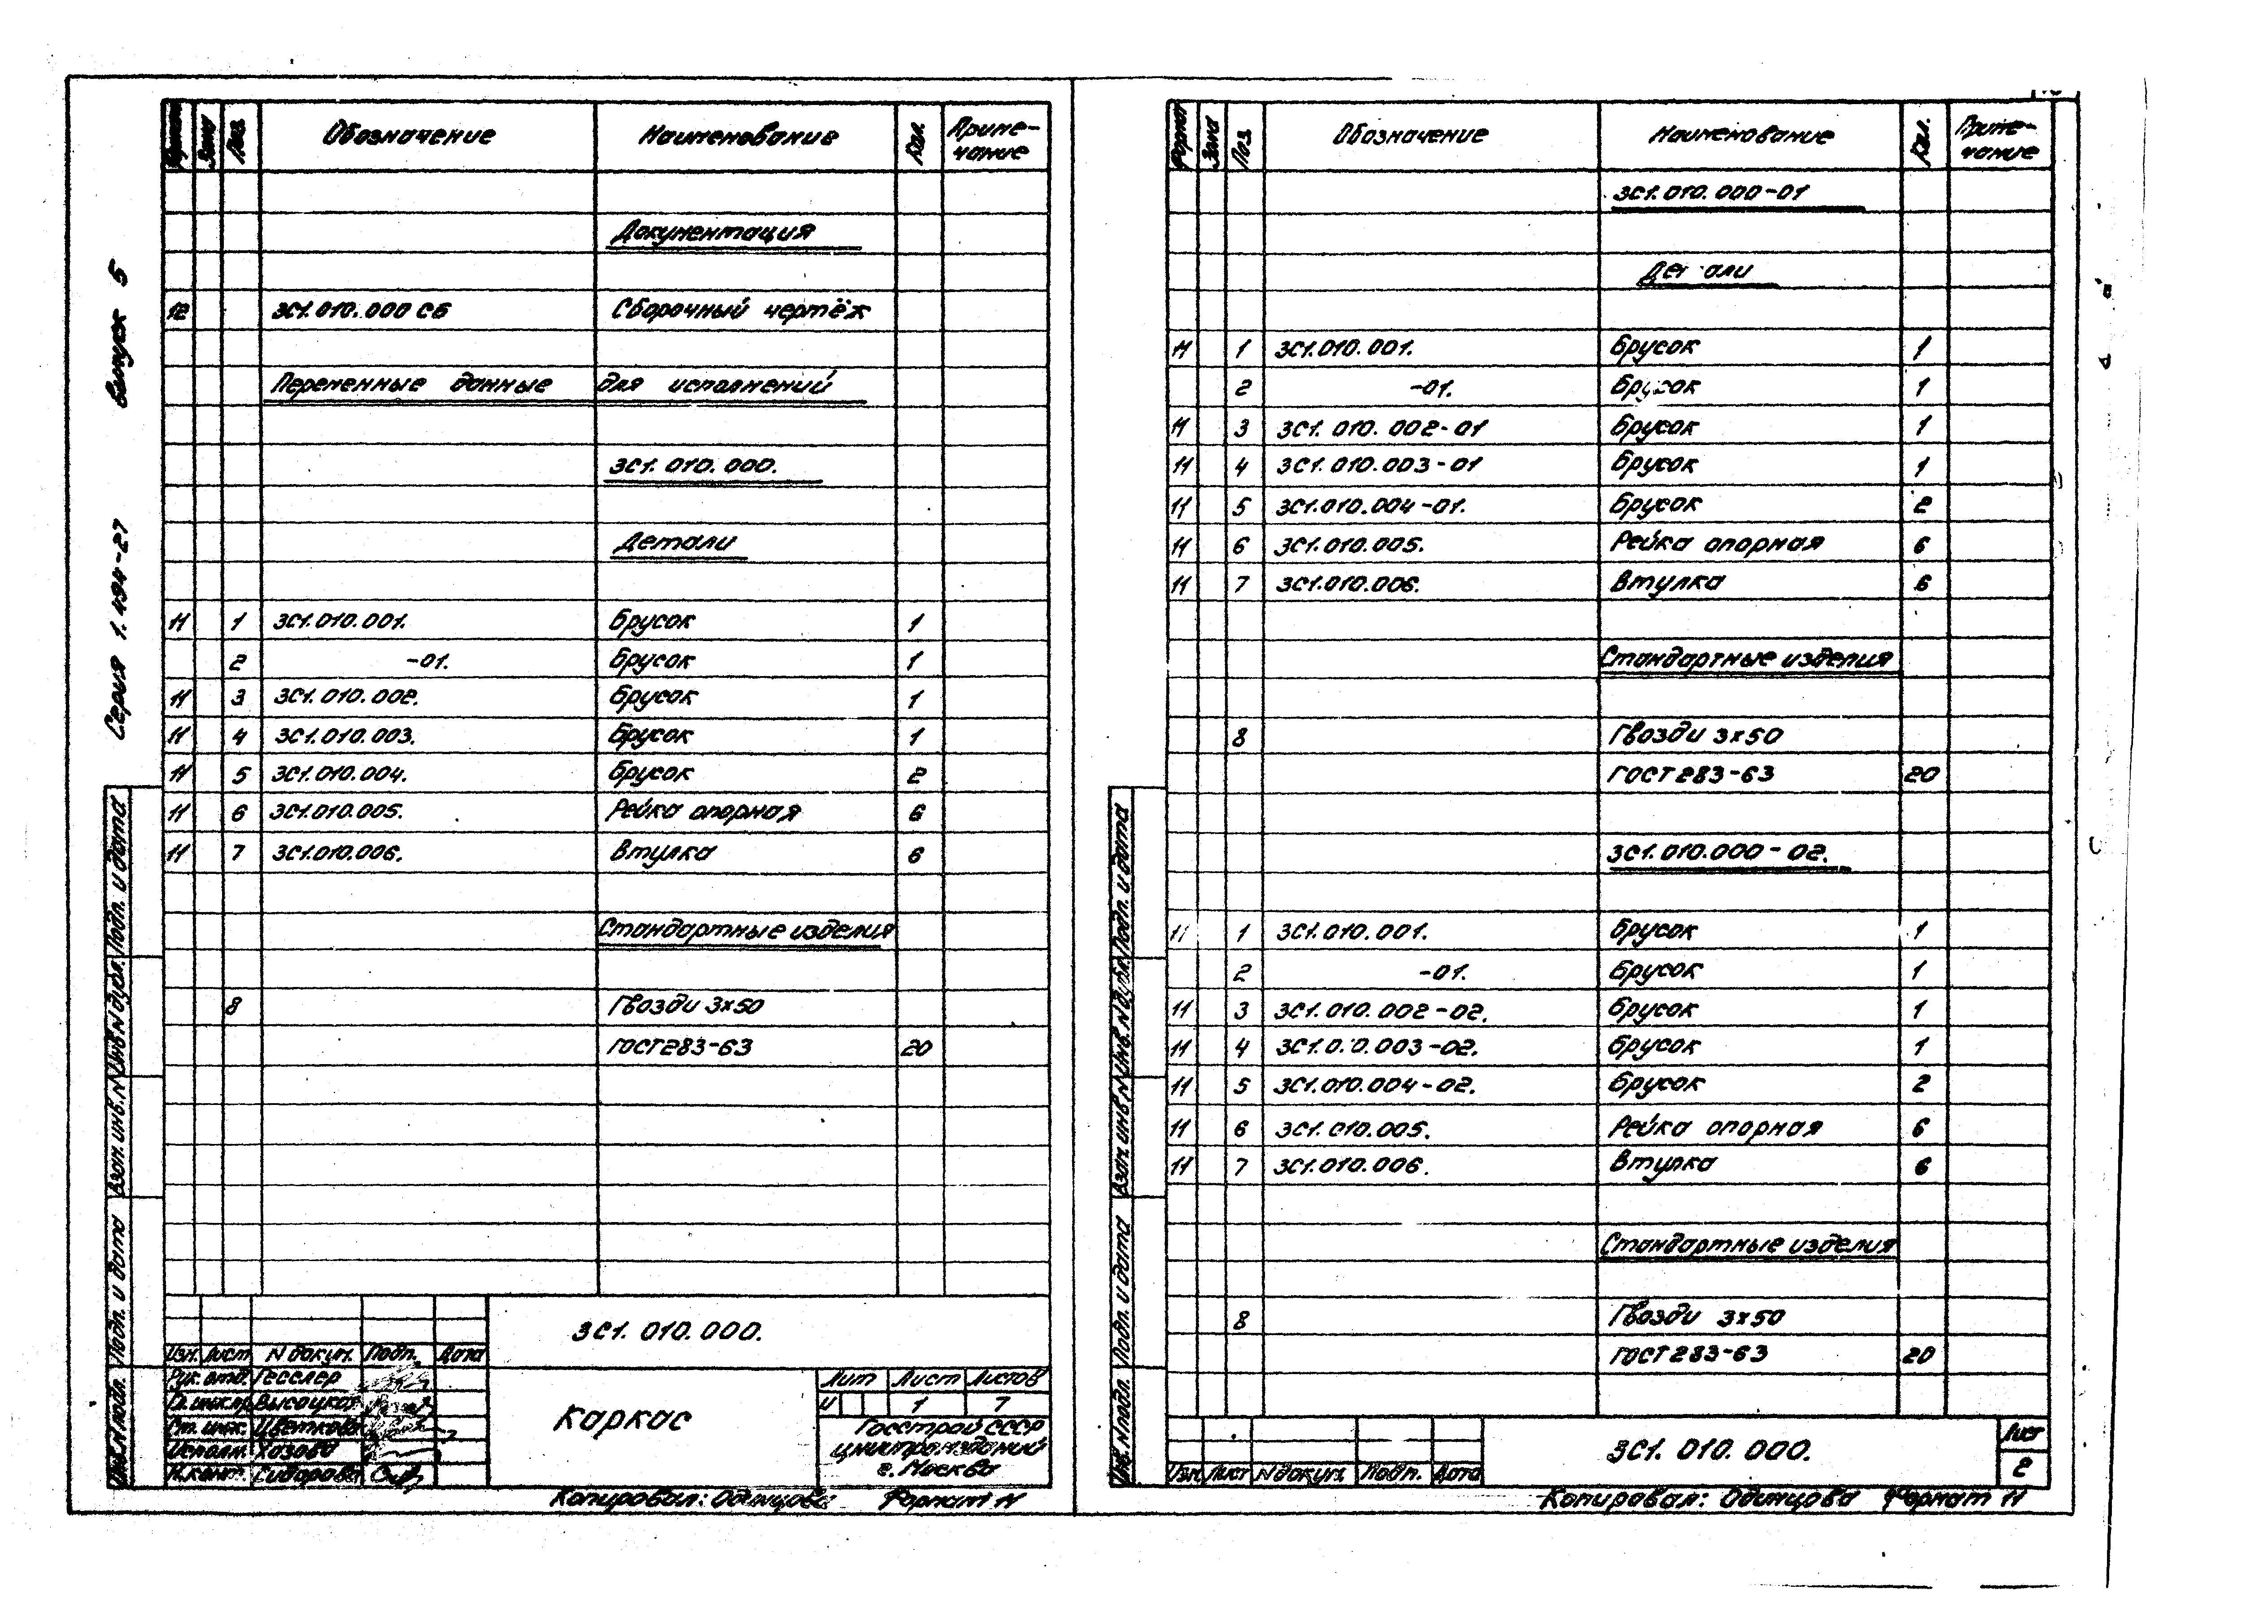 Серия 1.494-27 Выпуск 5
Формат Зона Поз. Обозначение Наименование Кол. Приме-
чание
Документация
12 3С1.010.000 СБ Сборочный чертёж
Переменные данные для исполнений
3С1.010.000.
Детали
11 1 3С1.010.001. Брусок 1
2 -01. Брусок 1
11 3 3С1.010.002. Брусок 1
11 4 3С1.010.003. Брусок 1
11 5 3С1.010.004. Брусок 2
11 6 3С1.010.005. Рейка опорная 6
11 7 3С1.010.006. Втулка 6
Стандартные изделия
8 Гвозди 3х50
ГОСТ 283-63 20
Инв.N подл. Подп. и дата Взам. инв. N Инв.N дубл. Подп. и дата
3С1.010.000.
Изм. Лист N докум. Подп. Дата
Рук. отд. Гесслер
Гл. инж. пр. Высоцкая
Ст. инж. Цветкова
Исполн. Хазова
Н.конт. Сидорова
Каркас
Лит Лист Листов
И 1 7
Госстрой СССР
ЦНИИпромзданий
г. Москва
Копировал: Одинцова Формат 11
Формат Зона Поз Обозначение Наименование Кол. Приме-
чание
3С1.010.000-01
Детали
11 1 3С1.010.001. Брусок 1
2 -01. Брусок 1
11 3 3С1.010.002-01 Брусок 1
11 4 3С1.010.003-01 Брусок 1
11 5 3С1.010.004-01. Брусок 2
11 6 3С1.010.005. Рейка опорная 6
11 7 3С1.010.006. Втулка 6
Стандартные изделия
8 Гвозди 3х50
ГОСТ 283-63 20
3С1.010.000-02.
11 1 3С1.010.001. Брусок 1
2 -01. Брусок 1
11 3 3С1.010.002-02. Брусок 1
11 4 3С1.010.003-02. Брусок 1
11 5 3С1.010.004-02. Брусок 2
11 6 3С1.010.005. Рейка опорная 6
11 7 3С1.010.006. Втулка 6
Стандартные изделия
8 Гвозди 3х50
ГОСТ 283-63 20
Инв.N подл. Подп. и дата Взам. инв. N Инв.N дубл. Подп. и дата
Изм Лист N докум. Подп. Дата
3С1.010.000.
Лист
2
Копировал: Одинцова Формат 11